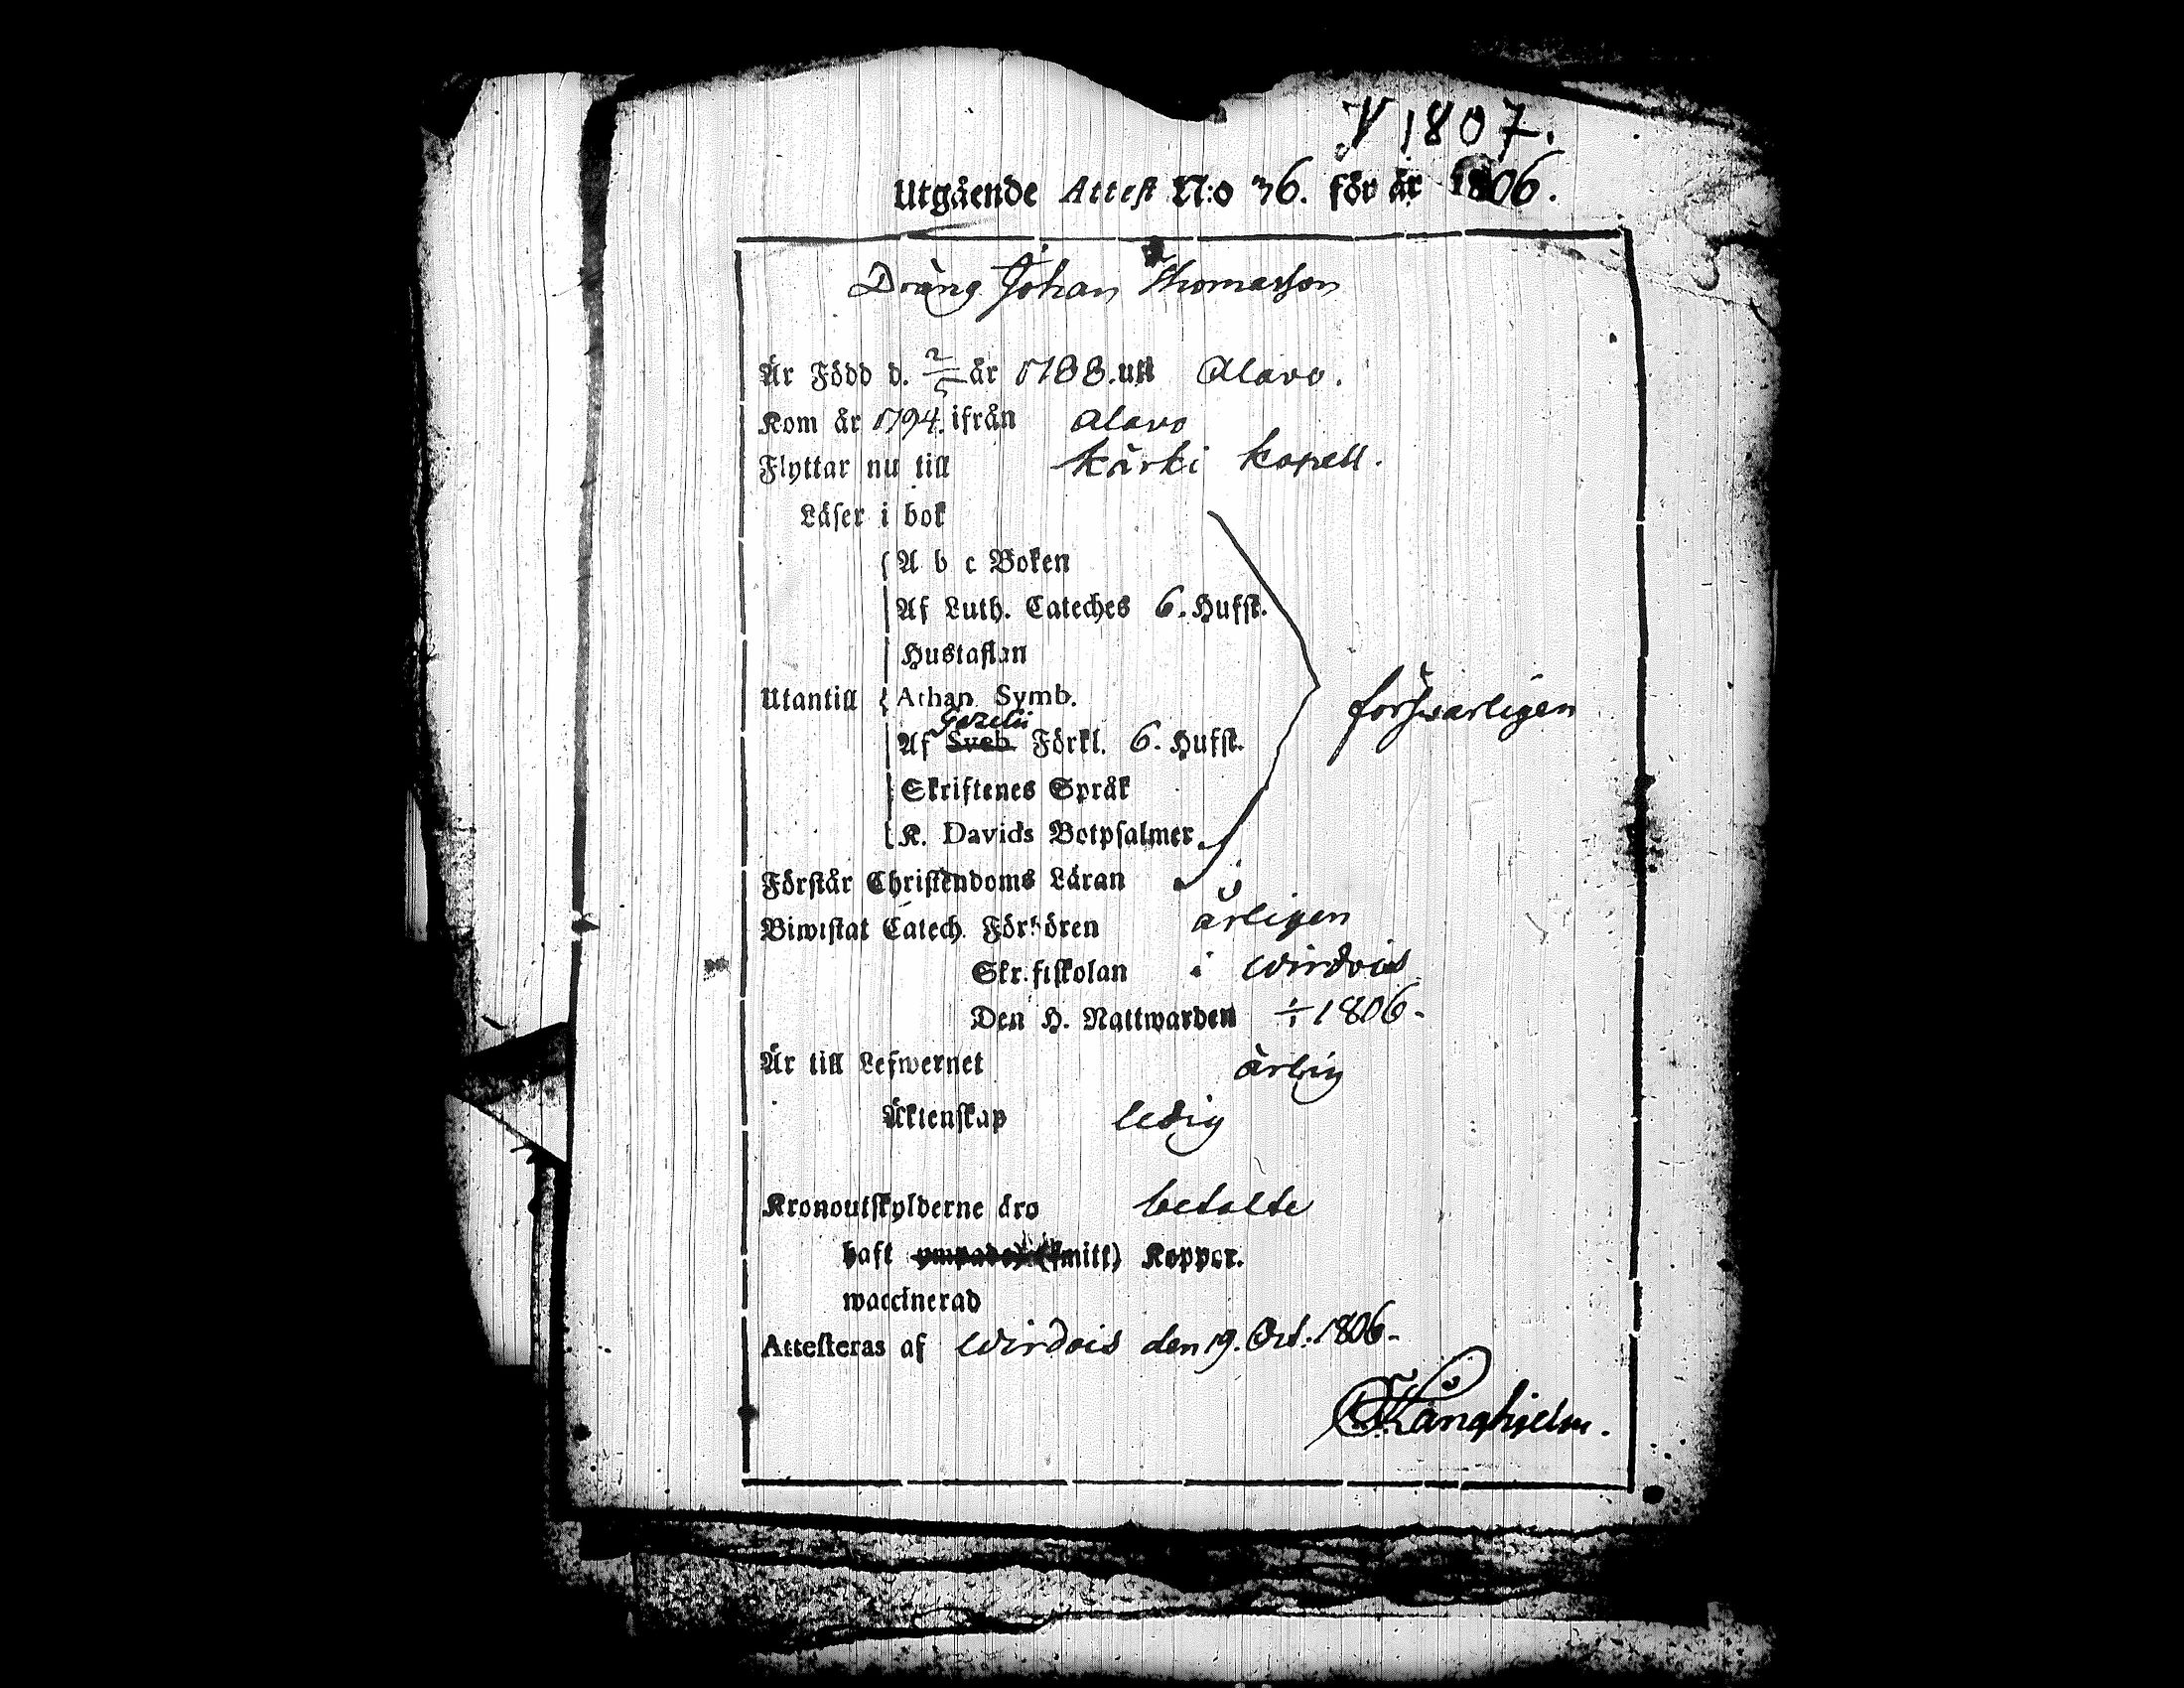 1807.
Utgående Attest N:o 36. för år 1806.
Dräng Johan Thomasson
Är Född d. 2/5 år 1788. uti Alavo.
Kom år 1794. ifrån Alavo
Flyttar nu till Kärki Kapell.
Läser i bok
A b c Boken
Af Luth. Cateches 6. Hufst.
Hustaflan
Utantill Athan Symb.
Gezelii
Af Sveb. Förkl. 6. Hufst.
försvarligen
Skriftenes Språk
K. Davids Botpsalmer.
Förstår Christendoms Läran
Biwistat Catech. Förhören årligen
Skriftskolan i Wirdois
Den H. Nattwarden 1/1 1806.
Är till Lefwernet ärlig
Äktenskap ledig
Kronoutskylderne äro betalte
haft ympade (smitt) Koppor.
waccinerad
Attesteras af Wirdois den 19. Oct: 1806.
Kånghjelm.